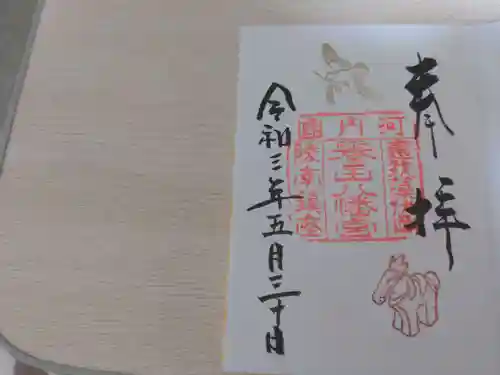 奉拝
河内國
誉田八幡宮
令和三年五月三十日